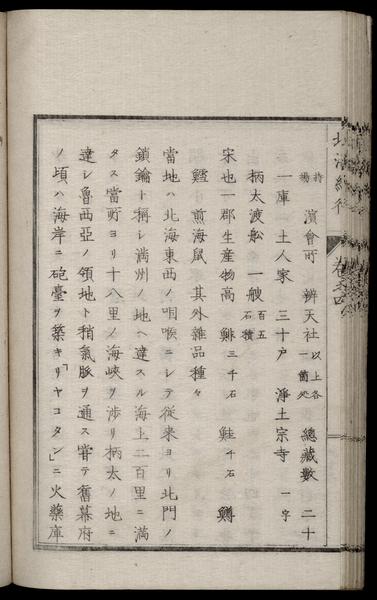 持場 濱會所 辨天社 以上各一箇処 總蔵數 二十
一庫 土人家 三十戸 淨土宗寺 一宇
柄太渡舩 一艘 百五石積
宋也一郡生産物高 鯡 三千石 鮭 千石 鱒
鱈 煎海鼠 其外雜品種々
當地ハ北海東西ノ咽喉ニシテ従来ヨリ北門ノ
鎖鑰ト稱シ満州ノ地ヘ達スル海上二百里ニ満
タス當所ヨリ十八里ノ海峡ヲ渉リ柄太ノ地ニ
達シ魯西亞ノ領地ト稍氣脈ヲ通ス嘗テ舊幕府
ノ頃ハ海岸ニ砲臺ヲ築キ「リヤコタン」ニ火藥庫
北海紀行 巻之四